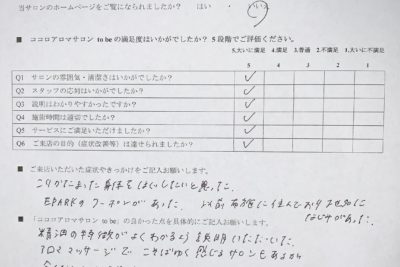 当サロンのホームページをご覧になられましたか？ はい ・ いいえ
■ ココロアロマサロン to be の満足度はいかがでしたか？ 5段階でご評価ください。
5.大いに満足 4.満足 3.普通 2.不満足 1.大いに不満足
5 4 3 2 1
Q1 サロンの雰囲気・清潔さはいかがでしたか？ ✓
Q2 スタッフの応対はいかがでしたか？ ✓
Q3 説明はわかりやすかったですか？ ✓
Q4 施術時間は適切でしたか？ ✓
Q5 サービスにご満足いただけましたか？ ✓
Q6 ご来店の目的（症状改善等）は達せられましたか？ ✓
■ ご来店いただいた症状やきっかけをご記入お願いします。
こりかたまった身体をほぐしたいと思った。
EPARKのクーポンがあった。 以前 に住んでおり土地に
なじみがあった。
■ 「ココロアロマサロン to be」の良かった点を具体的にご記入お願いします。
精油の特徴がよくわかるよう説明いただいた。
アロママッサージで くすぐったく感じるサロンもあるが